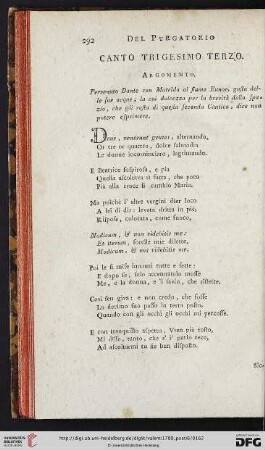 292 DEL PURGATORIO
CANTO TRIGESIMO TERZO.
ARGOMENTO.
Pervenuto Dante con Matelda al fiume Eunoe, gusta del-
le sue acque, la cui dolcezza per la brevità dello spa-
zio, che gli resta di questa seconda Cantica, dice non
potere esprimere.
Deus, venerunt gentes, alternando,
Or tre or quattro, dolce salmodia
Le donne incominciaro, lagrimando.
E Beatrice sospirosa, e pia
Quella ascoltava sì fatta, che poco
Più alla croce si cambiò Maria.
Ma poichè l' altre vergini dier loco
A lei di dir: levata dritta in piè,
Rispose, colorata, come fuoco,
Modicum, & non videbitis me:
Et iterum, sorelle mie dilette,
Modicum, & vos videbitis me.
Poi le si mise innanzi tutte e sette:
E dopo se, solo accennando mosse
Me, e la donna, e 'l savio, che ristette.
Così sen giva: e non credo, che fosse
Lo decimo suo passo in terra posto,
Quando con gli occhi gli occhi mi percosse.
E con tranquillo aspetto, Vien più tosto,
Mi disse, tanto, che s' i' parlo teco,
Ad ascoltarmi tu sie ben disposto.
DFG